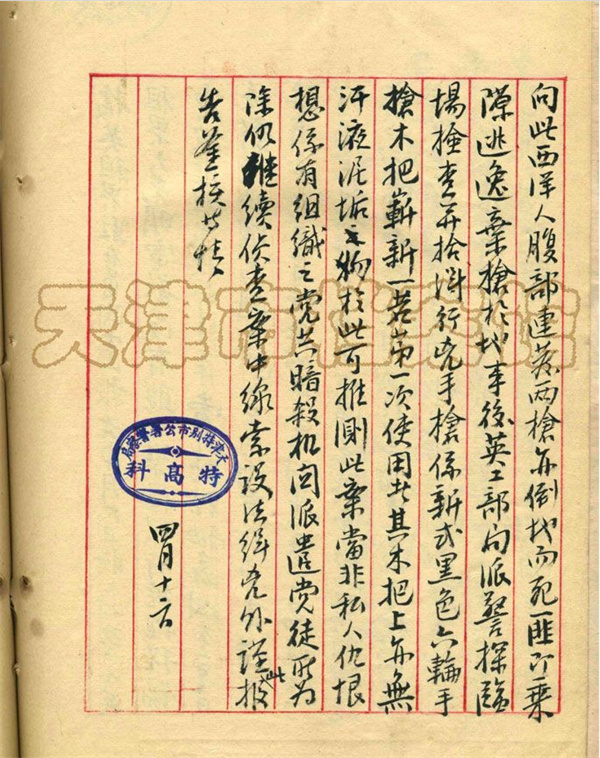 向此西洋人腹部連发两槍亦倒地而死匪即乘
隙逃逸棄槍於地事後英工部局派警探臨
場檢查并拾得行兇手槍係新式黑色六輪手
槍木把嶄新一若第一次使用者其木把上亦無
汗液泥垢之物於此可推測此案當非私人仇恨
想係有組織之党共暗殺机関派遣党徒所为
除仍継續侦查案中線索設法緝兇外謹此報
告
天津特別市公署警察局
特高科
四月十
天津市档案馆